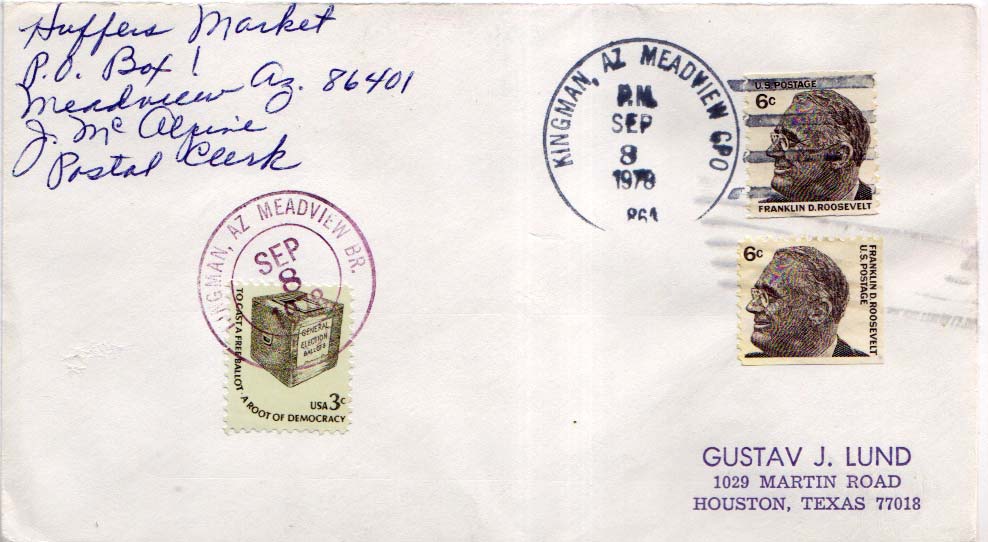 Huffers Market
P.O. Box 1
Meadview Az. 86401
J. McAlpine
Postal Clerk
KINGMAN, AZ MEADVIEW CPO
P.M.
SEP
8
1978
864
U.S. POSTAGE
6c
FRANKLIN D. ROOSEVELT
6c
FRANKLIN D. ROOSEVELT
U.S. POSTAGE
KINGMAN, AZ MEADVIEW BR.
SEP
8
GENERAL
ELECTION
BALLOTS
TO CAST A FREE BALLOT · A ROOT OF DEMOCRACY
USA 3c
GUSTAV J. LUND
1029 MARTIN ROAD
HOUSTON, TEXAS 77018